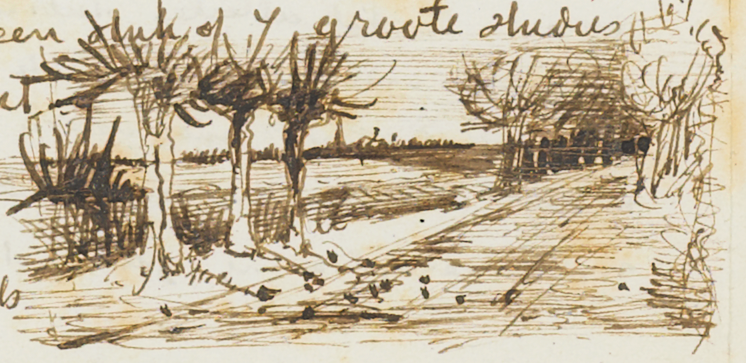 een stuk of 7 groote studies
et
ls